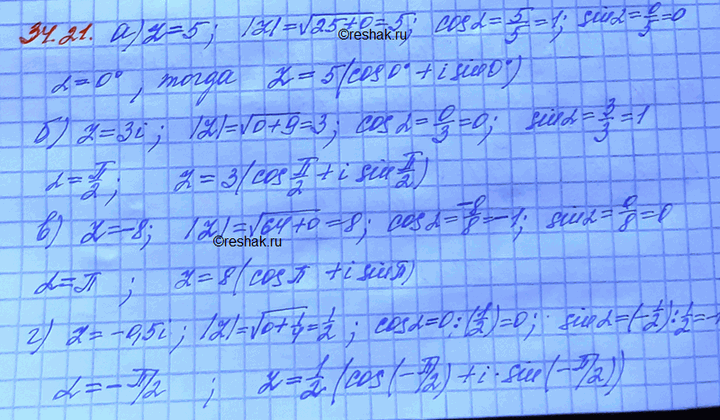 34.21. а) z=5; |z|=√25+0=5; cosα=5/5=1; sinα=0/5=0
©reshak.ru
α=0°, тогда z=5(cos0°+i sin0°)
б) z=3i; |z|=√0+9=3; cosα=0/3=0; sinα=3/3=1
α=π/2; z=3(cos π/2+i sin π/2)
в) z=-8; |z|=√64+0=8; cosα=-8/8=-1; sinα=0/8=0
©reshak.ru
α=π; z=8(cosπ+i sinπ)
г) z=-0,5i; |z|=√0+1/4=1/2; cosα=0:(1/2)=0; sinα=(-1/2):1/2=-1
α=-π/2; z=1/2(cos(-π/2)+i·sin(-π/2))